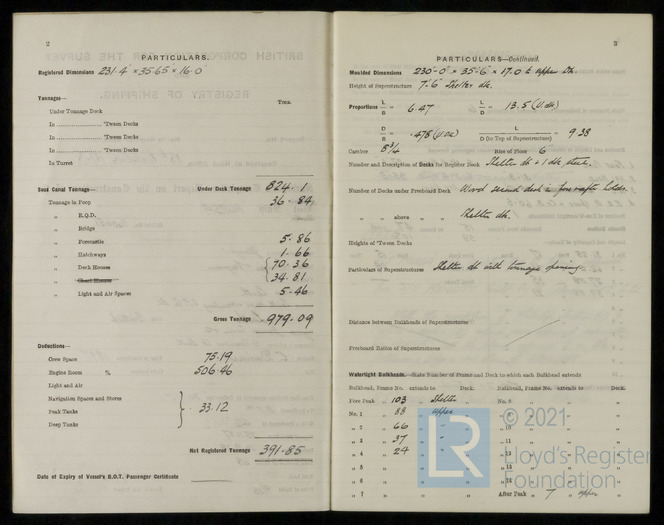 2
PARTICULARS.
Registered Dimensions 231·4 × 35·65 × 16·0
Tonnages—
Tons.
Under Tonnage Deck
In 'Tween Decks
In 'Tween Decks
In 'Tween Decks
In Turret
Suez Canal Tonnage— Under Deck Tonnage 824·1
Tonnage in Poop 36·84
„ R.Q.D.
„ Bridge
„ Forecastle 5·86
„ Hatchways 1·66
„ Deck Houses 70·36
„ Chart Houses 34·81
„ Light and Air Spaces 5·46
Gross Tonnage 979·09
Deductions—
Crew Space 75·19
Engine Room % 506·46
Light and Air
Navigation Spaces and Stores
Peak Tanks 33·12
Deep Tanks
Net Registered Tonnage 391·85
Date of Expiry of Vessel's B.O.T. Passenger Certificate
3
PARTICULARS—Continued.
Moulded Dimensions 230'-0" × 35'-6" × 17.0 to upper Dk.
Height of Superstructure 7'6" Shelter dk.
Proportions L/B = 6.47 L/D = 13.5 (U.dk)
D/B = .478 (U.DK) L/D (to Top of Superstructure) = 9.38
Camber 8¾ Rise of Floor 6
Number and Description of Decks for Register Book Shelter dk & 1 dk steel.
Number of Decks under Freeboard Deck Wood second deck in fore & after holds.
„ „ above „ „ Shelter dk.
Heights of 'Tween Decks
Particulars of Superstructures Shelter dk with tonnage opening.
Distance between Bulkheads of Superstructures
Freeboard Ratios of Superstructures
Watertight Bulkheads.—State Number of Frame and Deck to which each Bulkhead extends
Bulkhead, Frame No. extends to Deck. Bulkhead, Frame No. extends to Deck.
Fore Peak „ 103 Shelter No. 8
No. 1 88 upper
„ 2 66 „ „ 10
„ 3 37 „ „ 11
„ 4 24 „
„ 7 After Peak „ 7 „ upper
© 2021
LR
Lloyd's Register
Foundation